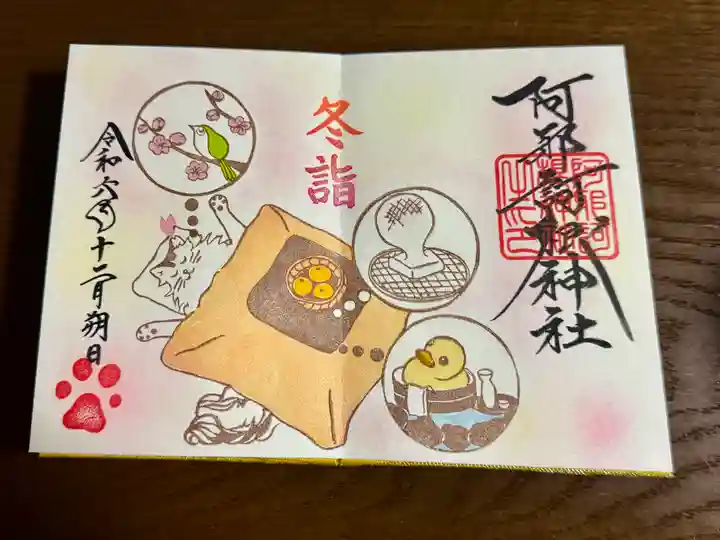 阿邪訶根神社
冬詣
令和六年十二月朔日